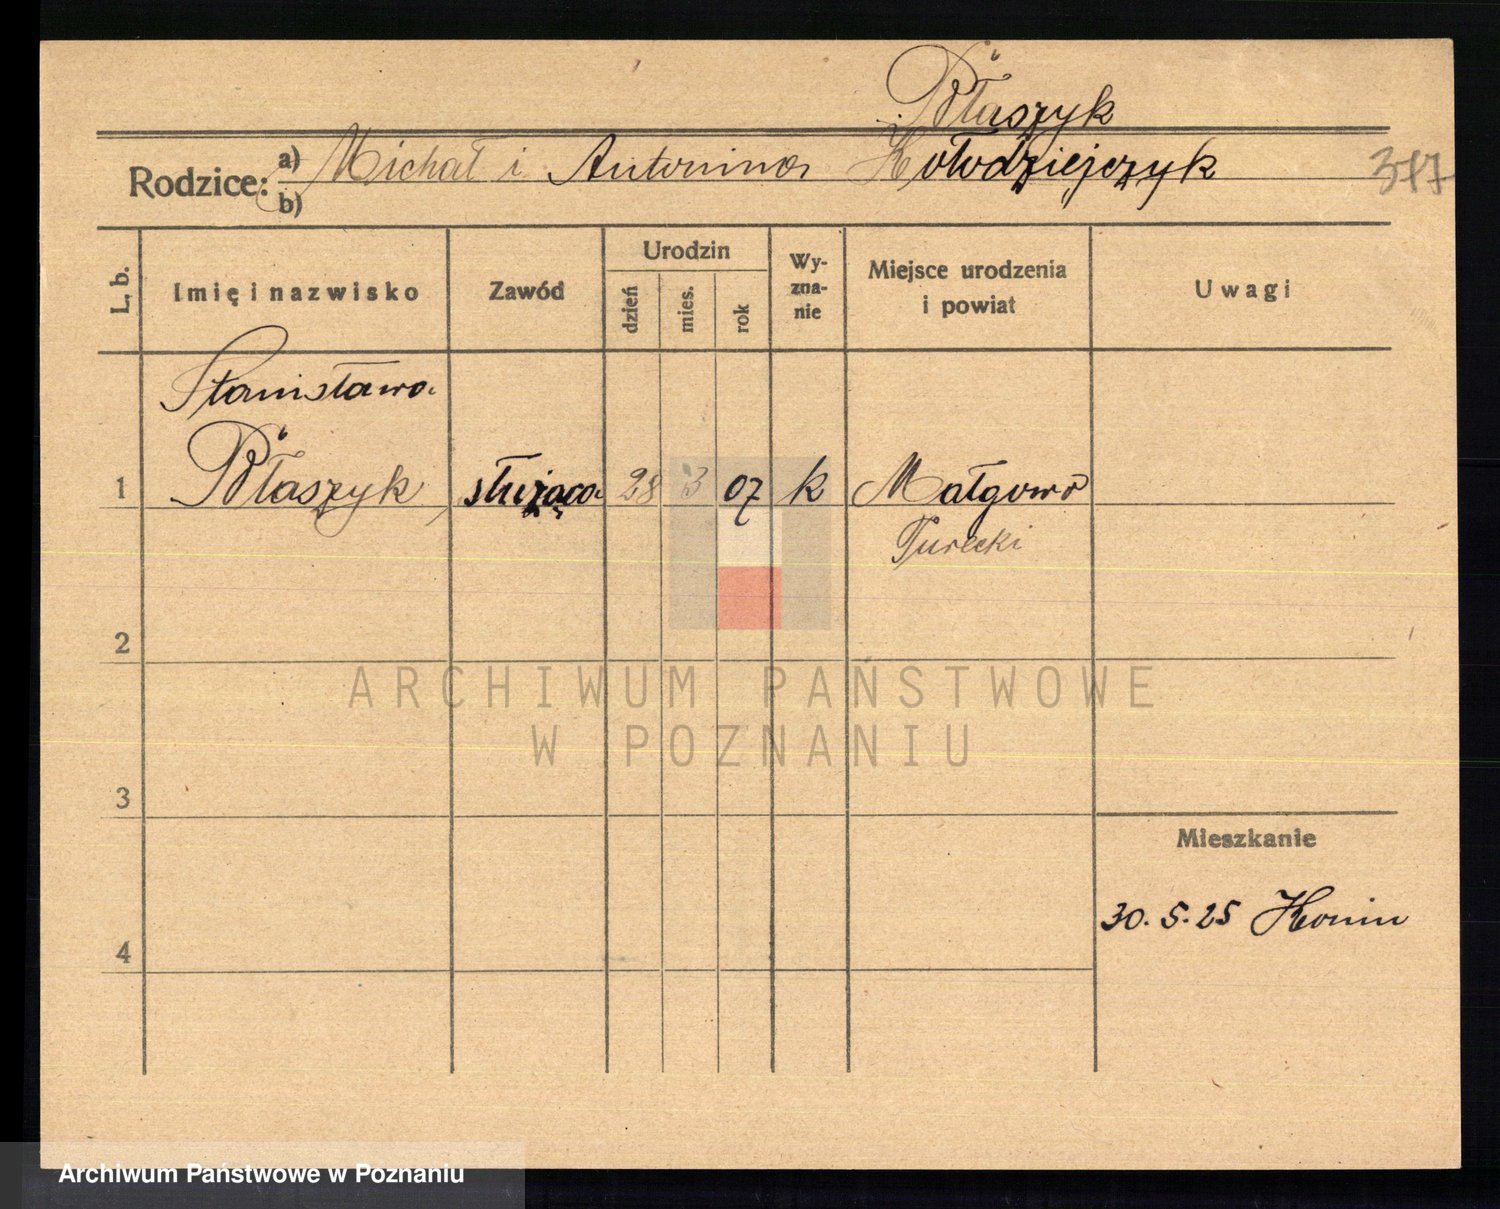 Błaszyk
Rodzice: a) Michał i Antonina Kołodziejczyk 377
b)
L. b. Imię i nazwisko Zawód Urodzin dzień mies. rok Wy-zna-nie Miejsce urodzenia i powiat Uwagi
Stanisława
1 Błaszyk służąca 28 3 07 k Małgów
Turecki
2
ARCHIWUM PAŃSTWOWE
W POZNANIU
3
Mieszkanie
30. 5. 25 Konin
4
Archiwum Państwowe w Poznaniu